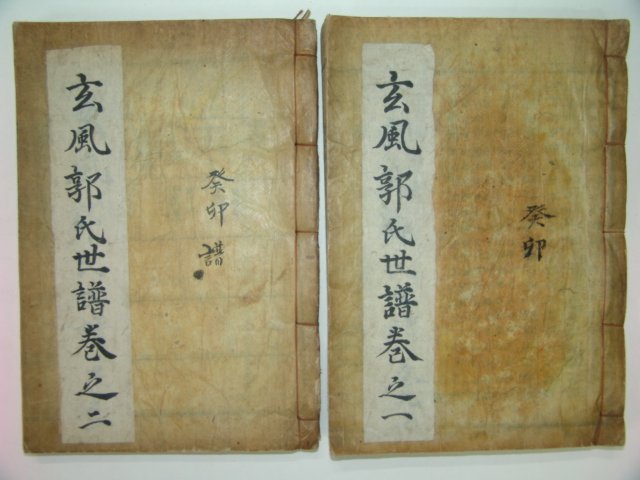 玄風郭氏世譜巻之一
癸卯
玄風郭氏世譜巻之二
癸卯譜